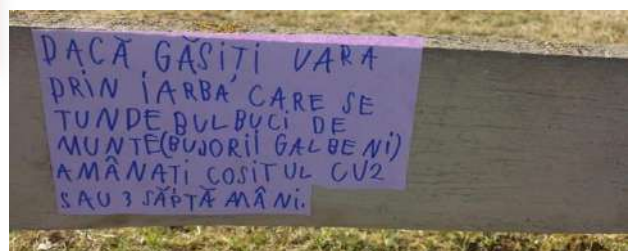 DACĂ GĂSIȚI VARA
PRIN IARBĂ CARE SE
TUNDE BULBUCI DE
MUNTE(BUJORII GALBENI)
AMÂNAȚI COSITUL CU2
SAU 3 SĂPTĂMÂNI.